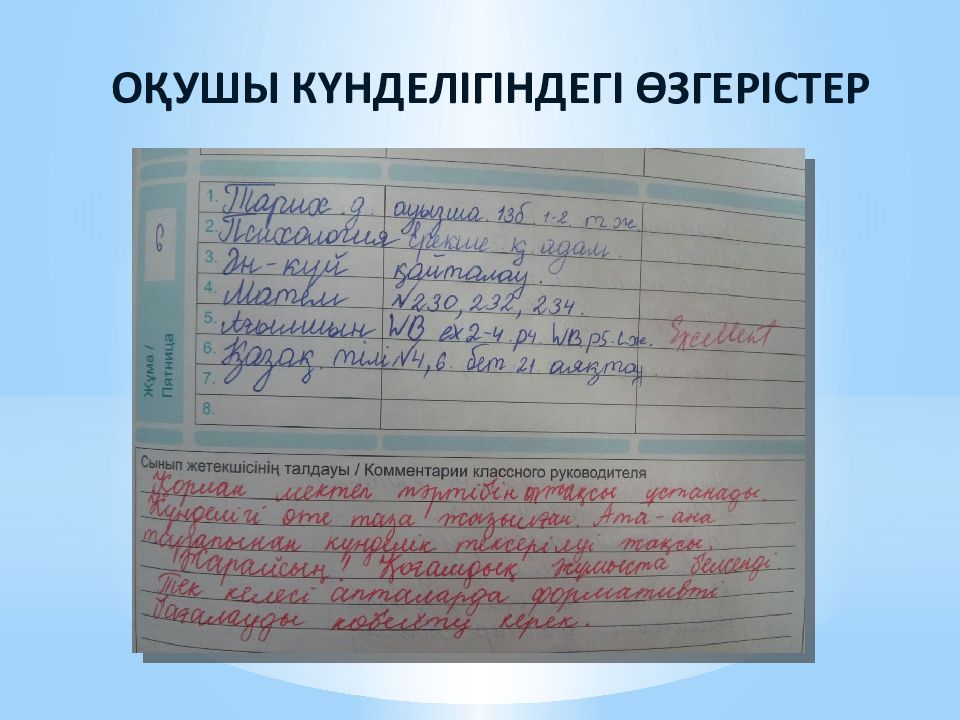 ОҚУШЫ КҮНДЕЛІГІНДЕГІ ӨЗГЕРІСТЕР
6
Жұма /
Пятница
1. Тарих. д. ауызша. 13б. 1-2. т ж
2. Психология Ерекше қ. адам.
3. Ән-күй қайталау.
4. Матем №230, 232, 234.
5. Ағылшын WB ex 2-4. p4. WB p5. Excellent
6. Қазақ. тілі №4, 6. бет. 21 аяқтау
7.
8.
Сынып жетекшісінің талдауы / Комментарии классного руководителя
мектеп тәртібін жақсы ұстанады.
Күнделігі өте таза жазылған. Ата-ана
тарапынан күнделік тексерілуі жақсы.
"Жарайсың"! Қоғамдық жұмыста белсенді.
Тек келесі апталарда формативті
бағалауды көбейту керек.